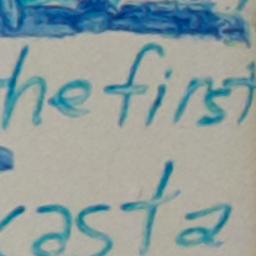 the first
casta